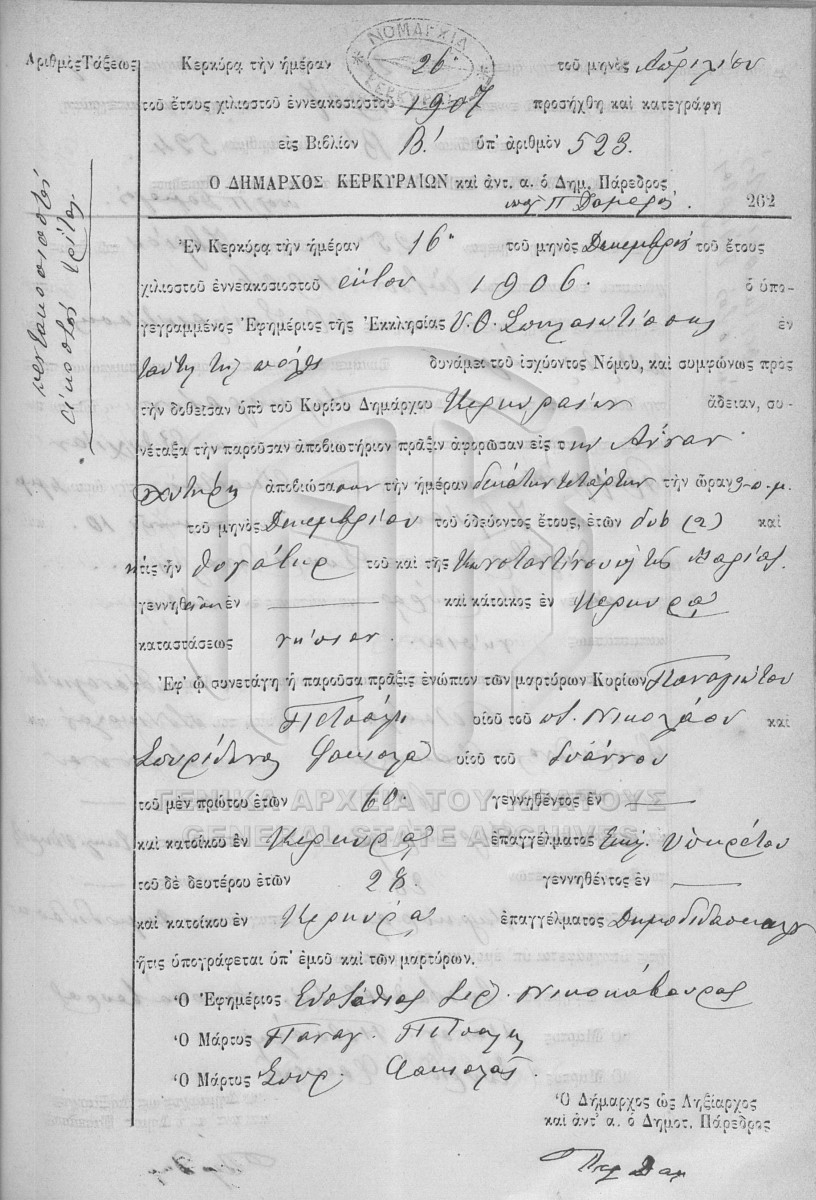 ΝΟΜΑΡΧΙΑ ΚΕΡΚΥΡΑΣ
Ἀριθμὸς Τάξεως
πεντακοσιοστὸς
εἰκοστὸς τρίτος
Κερκύρᾳ τὴν ἡμέραν 26 τοῦ μηνὸς Ἀπριλίου
τοῦ ἔτους χιλιοστοῦ ἐννεακοσιοστοῦ 1907 προσήχθη καὶ κατεγράφη
εἰς Βιβλίον Β' ὑπ' ἀριθμὸν 523.
Ο ΔΗΜΑΡΧΟΣ ΚΕΡΚΥΡΑΙΩΝ καὶ ἀντ. α. ὁ Δημ. Πάρεδρος
262
Ἐν Κερκύρᾳ τὴν ἡμέραν 16 τοῦ μηνὸς Δεκεμβρίου τοῦ ἔτους
χιλιοστοῦ ἐννεακοσιοστοῦ ἕκτου 1906. ὁ ὑπο-
γεγραμμένος Ἐφημέριος τῆς Ἐκκλησίας Υ. Θ. Σπηλαιωτίσσης ἐν
ταύτῃ τῇ πόλει δυνάμει τοῦ ἰσχύοντος Νόμου, καὶ συμφώνως πρὸς
τὴν δοθεῖσαν ὑπὸ τοῦ Κυρίου Δημάρχου Κερκυραίων ἄδειαν, συ-
νέταξα τὴν παροῦσαν ἀποβιωτήριον πρᾶξιν ἀφορῶσαν εἰς την Ἄνναν
ἀποβιώσασαν τὴν ἡμέραν δεκάτην τετάρτην τὴν ὥραν 9 π.μ.
τοῦ μηνὸς Δεκεμβρίου τοῦ ὁδεύοντος ἔτους, ἐτῶν δύο (2) καὶ
ἥτις ἦν θυγάτηρ τοῦ καὶ τῆς Κωνσταντίνου καὶ της Μαρίας
γεννηθεῖσα ἐν — καὶ κάτοικος ἐν Κερκύρᾳ
καταστάσεως νήπιον.
Ἐφ' ᾧ συνετάγη ἡ παροῦσα πρᾶξις ἐνώπιον τῶν μαρτύρων Κυρίων Παναγιώτου
Πετσάλη υἱοῦ τοῦ π. Νικολάου καὶ
Σπυρίδωνος υἱοῦ τοῦ Ἰωάννου
τοῦ μὲν πρώτου ἐτῶν 60. γεννηθέντος ἐν —
καὶ κατοίκου ἐν Κερκύρᾳ ἐπαγγέλματος Ἐκκ. Ὑπηρέτου
τοῦ δὲ δευτέρου ἐτῶν 28 γεννηθέντος ἐν —
καὶ κατοίκου ἐν Κερκύρᾳ ἐπαγγέλματος Δημοδιδασκάλου
ἥτις ὑπογράφεται ὑπ' ἐμοῦ καὶ τῶν μαρτύρων.
Ὁ Ἐφημέριος Εὐστάθιος Ἱερ.
Ὁ Μάρτυς Παναγ. Πετσάλης
Ὁ Μάρτυς Σπυρ.
Ὁ Δήμαρχος ὡς Ληξίαρχος
καὶ ἀντ' α. ὁ Δημοτ. Πάρεδρος
ΓΕΝΙΚΑ ΑΡΧΕΙΑ ΤΟΥ ΚΡΑΤΟΥΣ
GENERAL STATE ARCHIVES